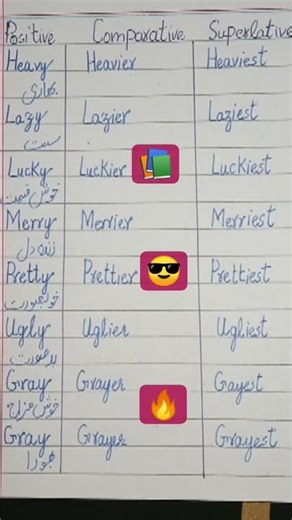 Positive Comparative Superlative
Heavy Heavier Heaviest
بھاری
Lazy Lazier Laziest
سست
Lucky Luckier Luckiest
خوش قسمت
Merry Merrier Merriest
زندہ دل
Pretty Prettier Prettiest
خوبصورت
Ugly Uglier Ugliest
بدصورت
Gray Grayer Gayest
خوش مزاج
Gray Grayer Grayest
بھورا